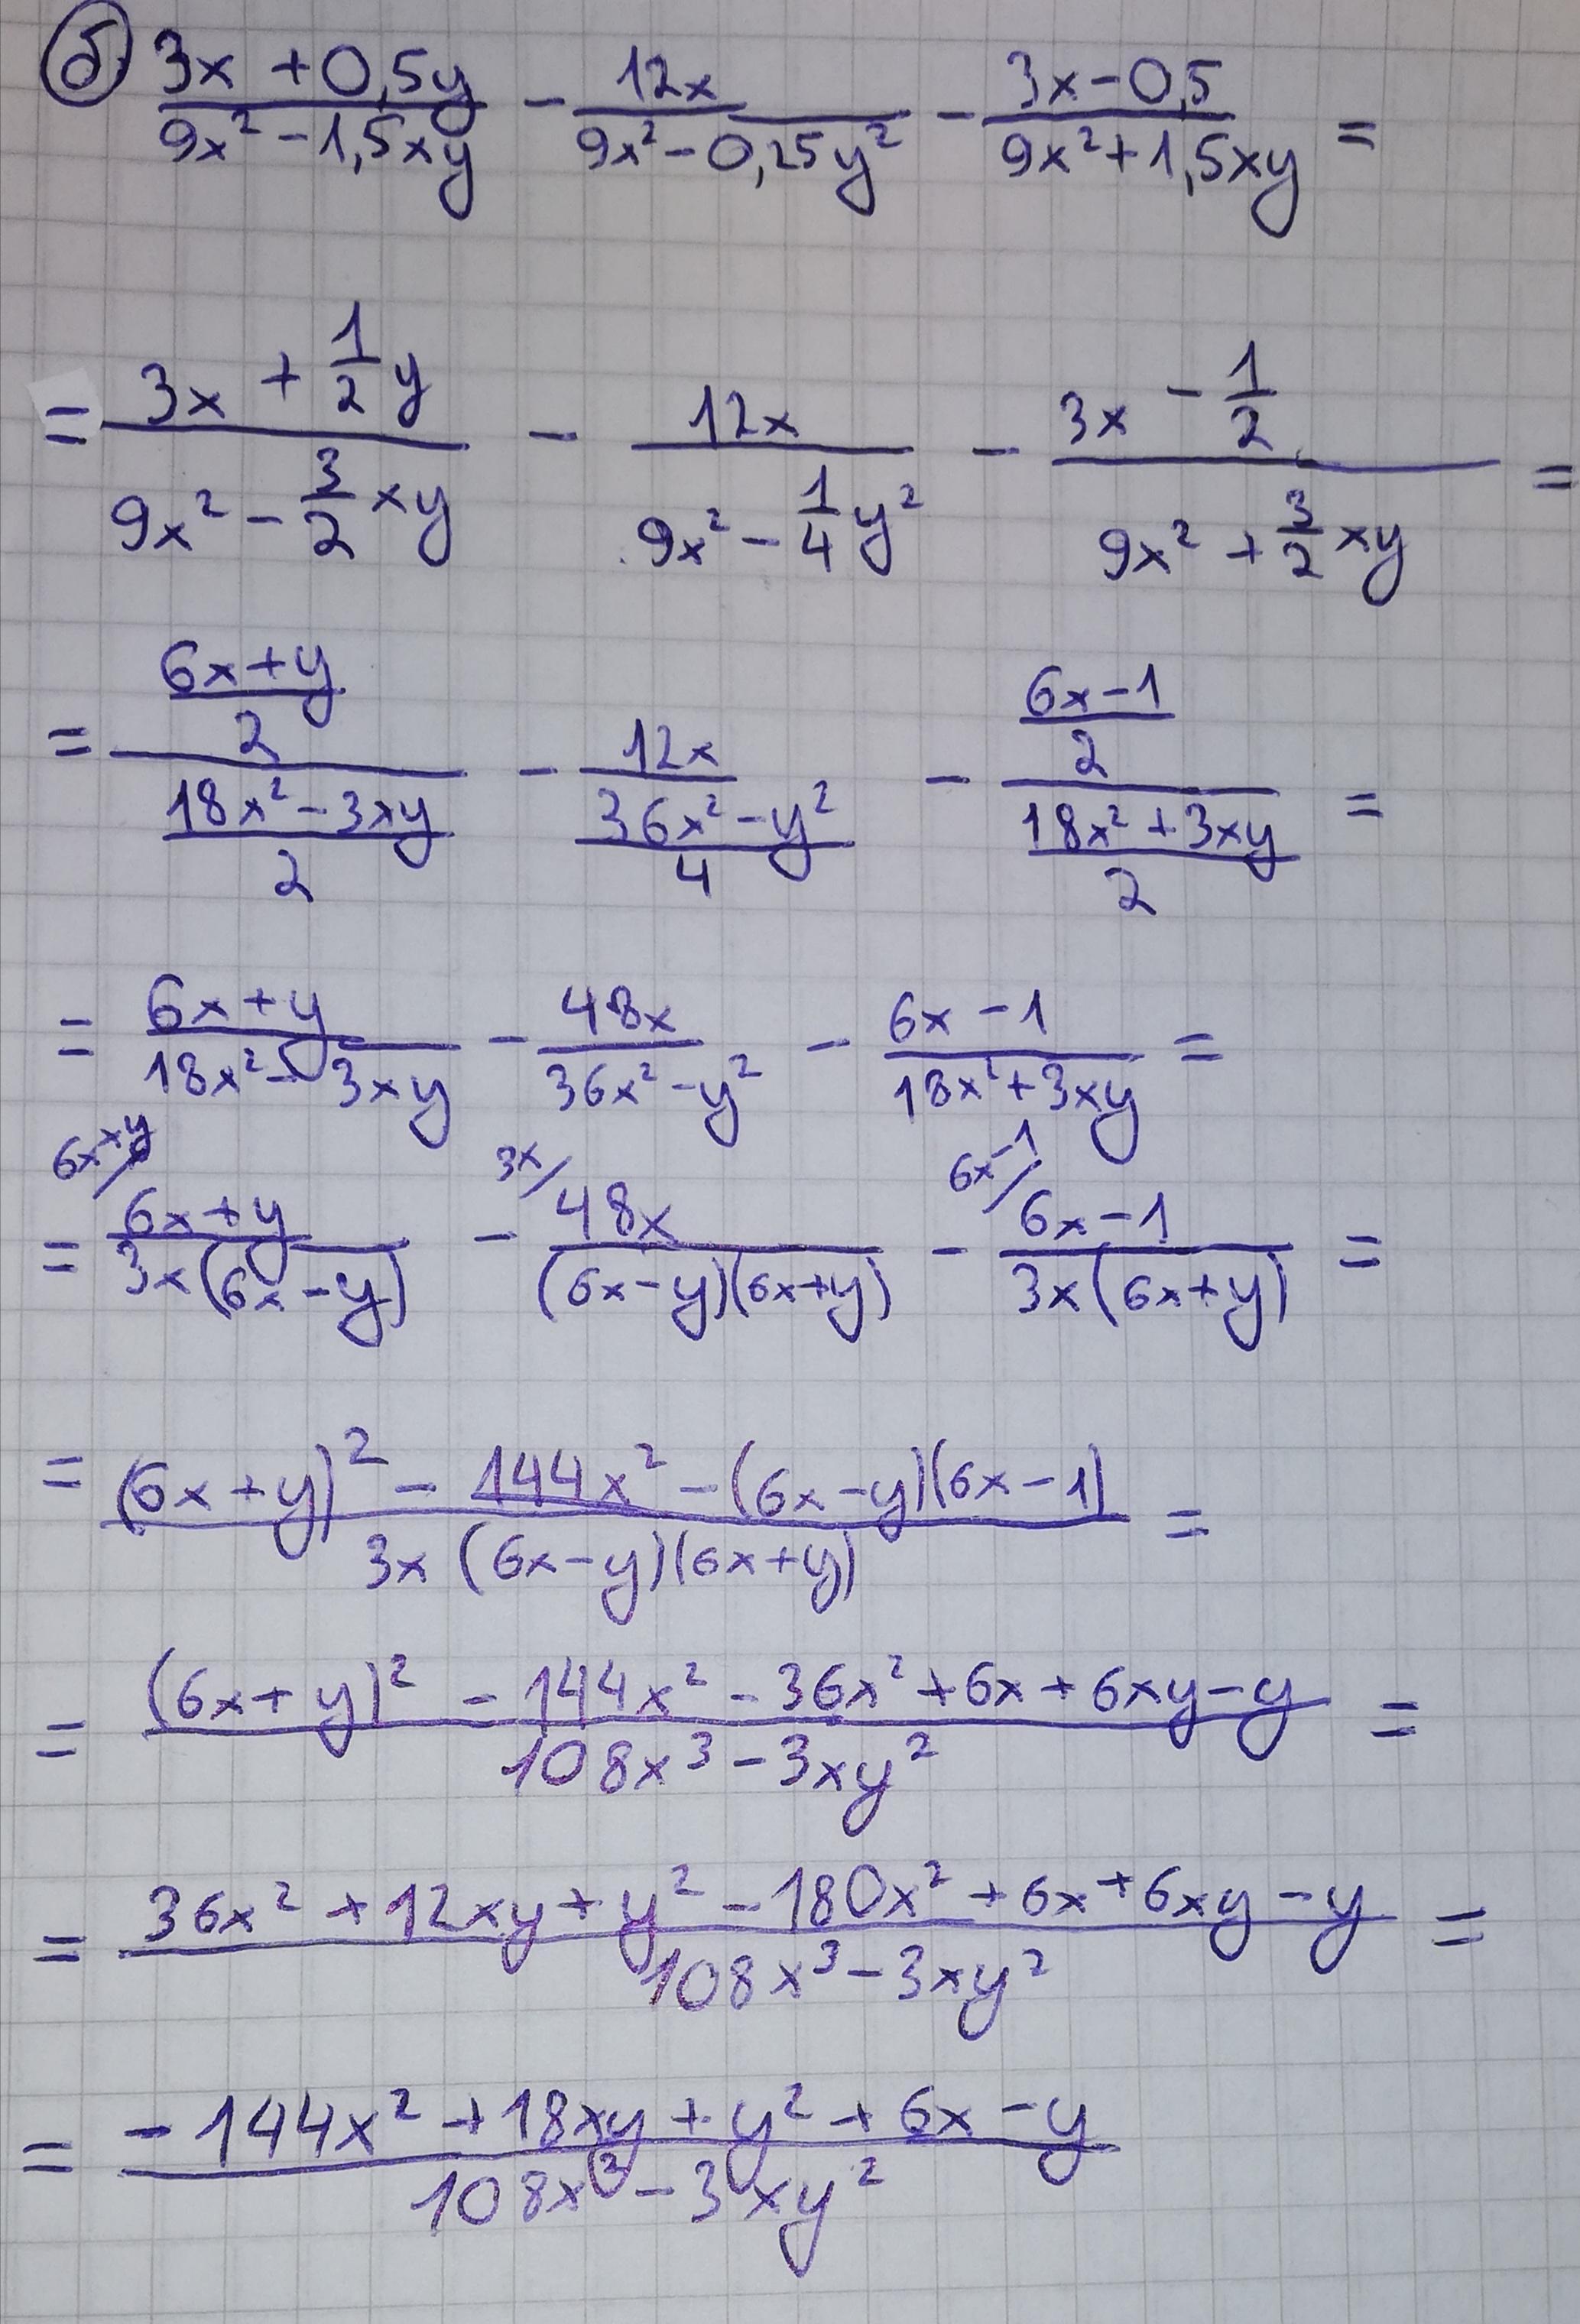 б) (3x + 0,5y)/(9x² - 1,5xy) - 12x/(9x² - 0,25y²) - (3x - 0,5)/(9x² + 1,5xy) =
= (3x + 1/2 y)/(9x² - 3/2 xy) - 12x/(9x² - 1/4 y²) - (3x - 1/2)/(9x² + 3/2 xy) =
= ((6x+y)/2)/((18x² - 3xy)/2) - 12x/((36x² - y²)/4) - ((6x-1)/2)/((18x² + 3xy)/2) =
= (6x+y)/(18x² - 3xy) - 48x/(36x² - y²) - (6x-1)/(18x² + 3xy) =
3x/ 6x-1/
= (6x+y)/(3x(6x-y)) - 48x/((6x-y)(6x+y)) - (6x-1)/(3x(6x+y)) =
= ((6x+y)² - 144x² - (6x-y)(6x-1))/(3x(6x-y)(6x+y)) =
= ((6x+y)² - 144x² - 36x² + 6x + 6xy - y)/(108x³ - 3xy²) =
= (36x² + 12xy + y² - 180x² + 6x + 6xy - y)/(108x³ - 3xy²) =
= (-144x² + 18xy + y² + 6x - y)/(108x³ - 3xy²)